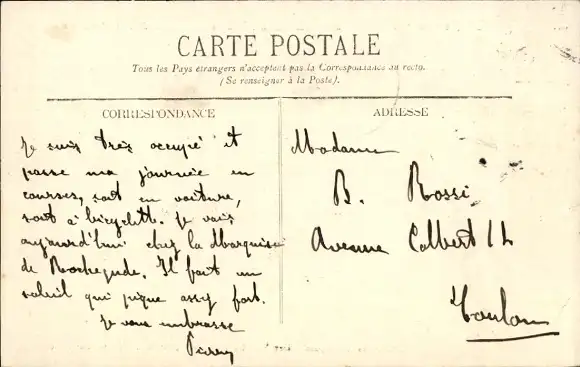 CARTE POSTALE
Tous les Pays étrangers n'acceptent pas la Correspondance au recto.
(Se renseigner à la Poste).
CORRESPONDANCE
Je suis très occupé et
passe ma journée en
courses, soit en voiture,
soit à bicyclette. Je vais
aujourd'hui chez la Marquise
de Rochegude. Il fait un
soleil qui pique assez fort.
Je vous embrasse
ADRESSE
Madame
B. Rossi
Avenue Colbert
Toulon